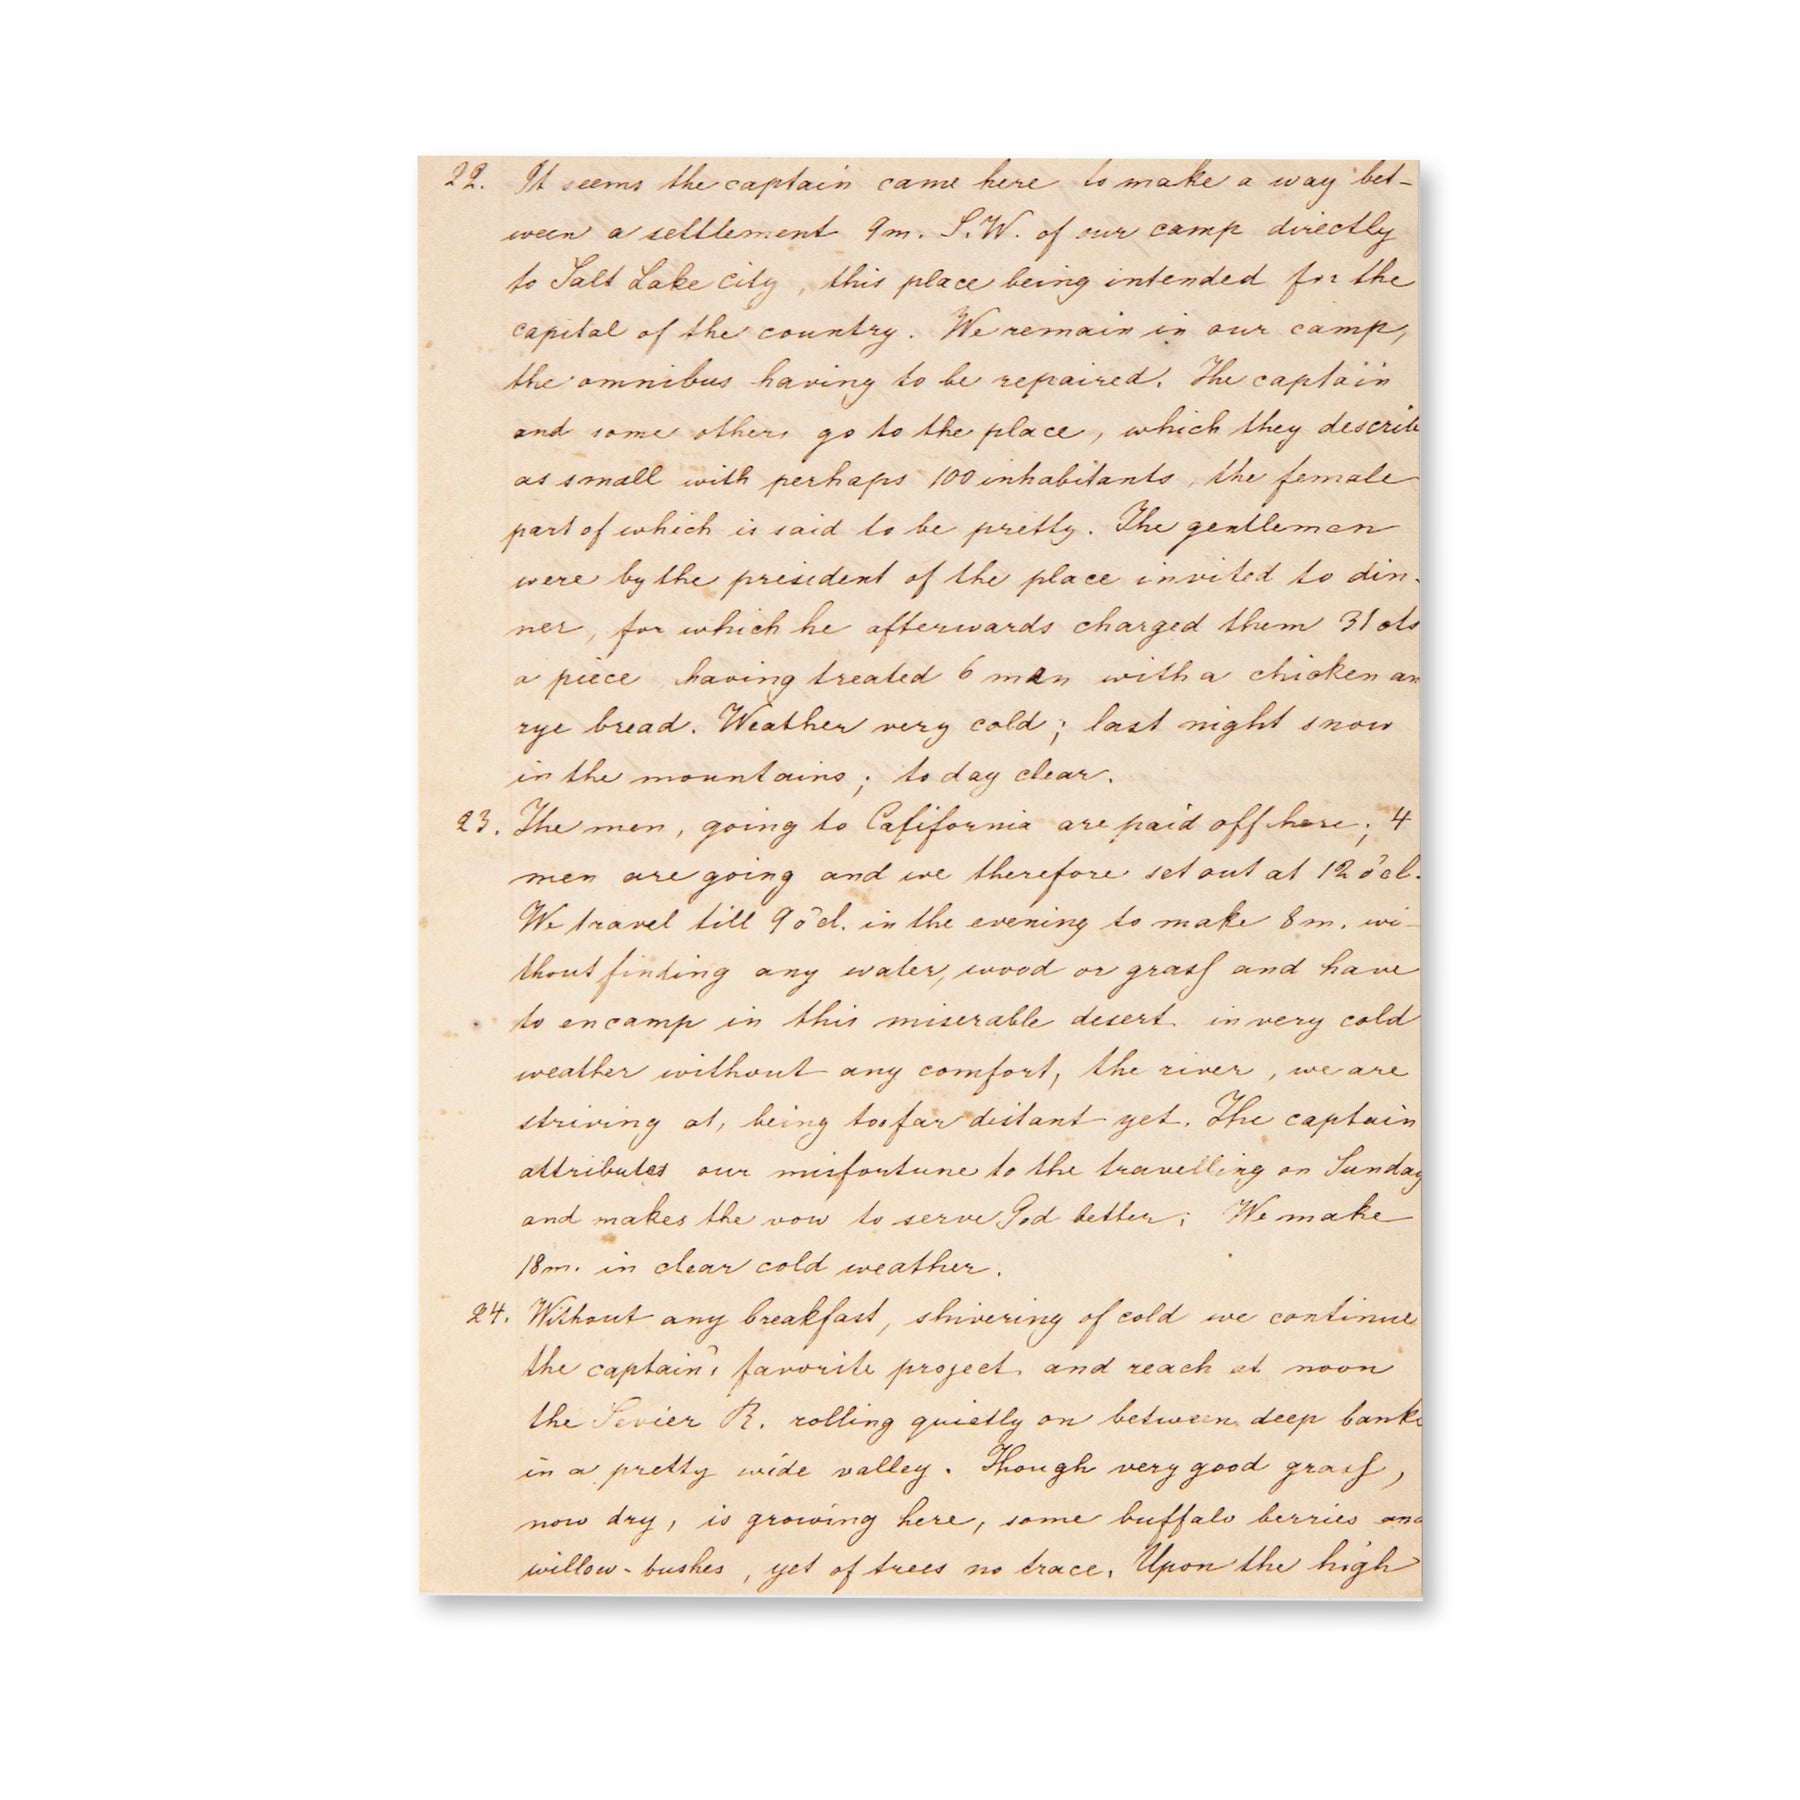 22. It seems the captain came here to make a way bet-
ween a settlement 9m. S.W. of our camp directly
to Salt Lake City, this place being intended for the
capital of the country. We remain in our camp,
the omnibus having to be repaired. The captain
and some others go to the place, which they describe
as small with perhaps 100 inhabitants, the female
part of which is said to be pretty. The gentlemen
were by the president of the place invited to din-
ner, for which he afterwards charged them 31 cts
a piece having treated 6 men with a chicken an
rye bread. Weather very cold; last night snow
in the mountains; to day clear.
23. The men, going to California are paid off here; 4
men are going and we therefore set out at 12 o'cl.
We travel till 9 o'cl. in the evening to make 8m. wi-
thout finding any water, wood or grass and have
to encamp in this miserable desert in very cold
weather without any comfort, the river, we are
striving at, being too far distant yet. The captain
attributes our misfortune to the travelling on Sunday
and makes the vow to serve God better; We make
18m. in clear cold weather.
24. Without any breakfast, shivering of cold we continue
the captain's favorite project and reach at noon
the Sevier R. rolling quietly on between deep banks
in a pretty wide valley. Though very good grass,
now dry, is growing here, some buffalo berries and
willow-bushes, yet of trees no trace. Upon the high